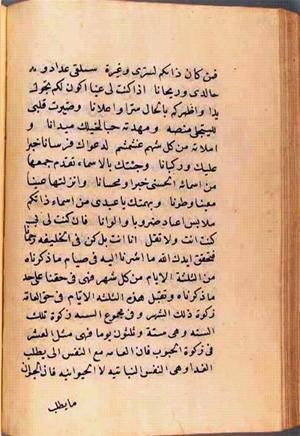 فمن كان ذاكم لسترى وغيرة سيلقى غداروه
خالدى وريحانا اذا كنت لى عينا اكون لكم بحولى
يدا واظهركم بالحال سرّا واعلانا وصيرت قلبى
للتجلى منصه ومهدته حبا لخيلك ميدانا و
املاته من كل شهم غشمشم لدعواك فرسانا خيرا
عليك وركبانا وجئتك بالاسماء تقدم جمعها
من اسماء الحسنى خبرا ومحسانا وانزلتها عينا
معينا وطونا وبهمتك باعبدى من اسماء ذاتكم
ملابس اعياد ضروبا والوانا فان كنت لى بى
كنت انت ولا تقل انا انت بل كن فى الخليفه رحمانا
فتحقق ايدك الله ما اشرنا اليه فى صيام ما ذكرناه
من الثلثة الايام من كل شهر فهى فى حقنا على حد
ما ذكرناه وتقبل هذه الثلثة الايام فى حق العامّه
زكوة ذلك الشهر وفى مجموع السنه زكوة تلك
السنه وهى ستة وثلثون يوما فهى مثل العشر
فى زكوة الحبوب فان العامه مع النفس التى يطلب
الغدا وهى النفس النباتيه لا الحيوانيه فان الحيوان
ما يطلب